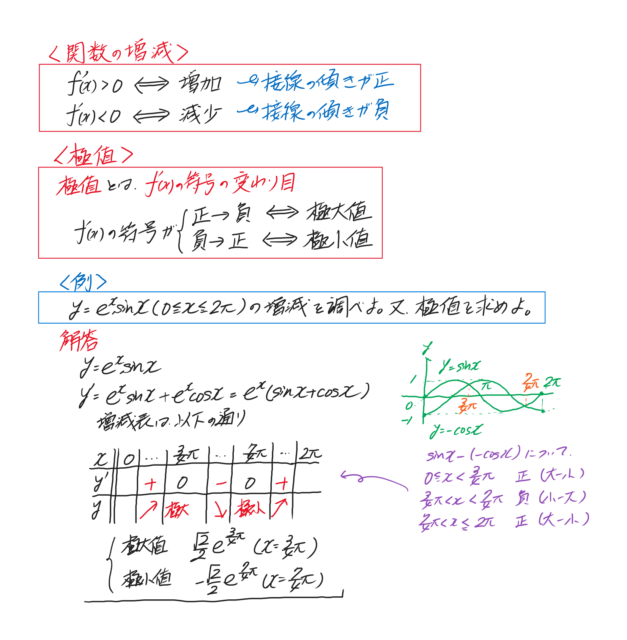 <関数の増減>
f'(x)>0 ⇔ 増加 接線の傾きが正
f'(x)<0 ⇔ 減少 接線の傾きが負
<極値>
極値とは、f'(x)の符号の変わり目
f'(x)の符号が { 正→負 ⇔ 極大値
負→正 ⇔ 極小値
<例>
y=e^x sinx (0≦x≦2π)の増減を調べよ。又、極値を求めよ。
解答
y=e^x sinx
y'=e^x sinx+e^x cosx=e^x(sinx+cosx)
増減表は、以下の通り
x 0 … 3/4π … 7/4π … 2π
y' + 0 − 0 +
y ↗ 極大 ↘ 極小 ↗
極大値 √2/2 e^(3/4π) (x=3/4π)
極小値 -√2/2 e^(7/4π) (x=7/4π)
y
y=sinx
1 π 7/4π 2π
0 3/4π
-1
y=-cosx
sinx-(-cosx)について
0≦x<3/4π 正 (大-小)
3/4π<x<7/4π 負 (小-大)
7/4π<x≦2π 正 (大-小)